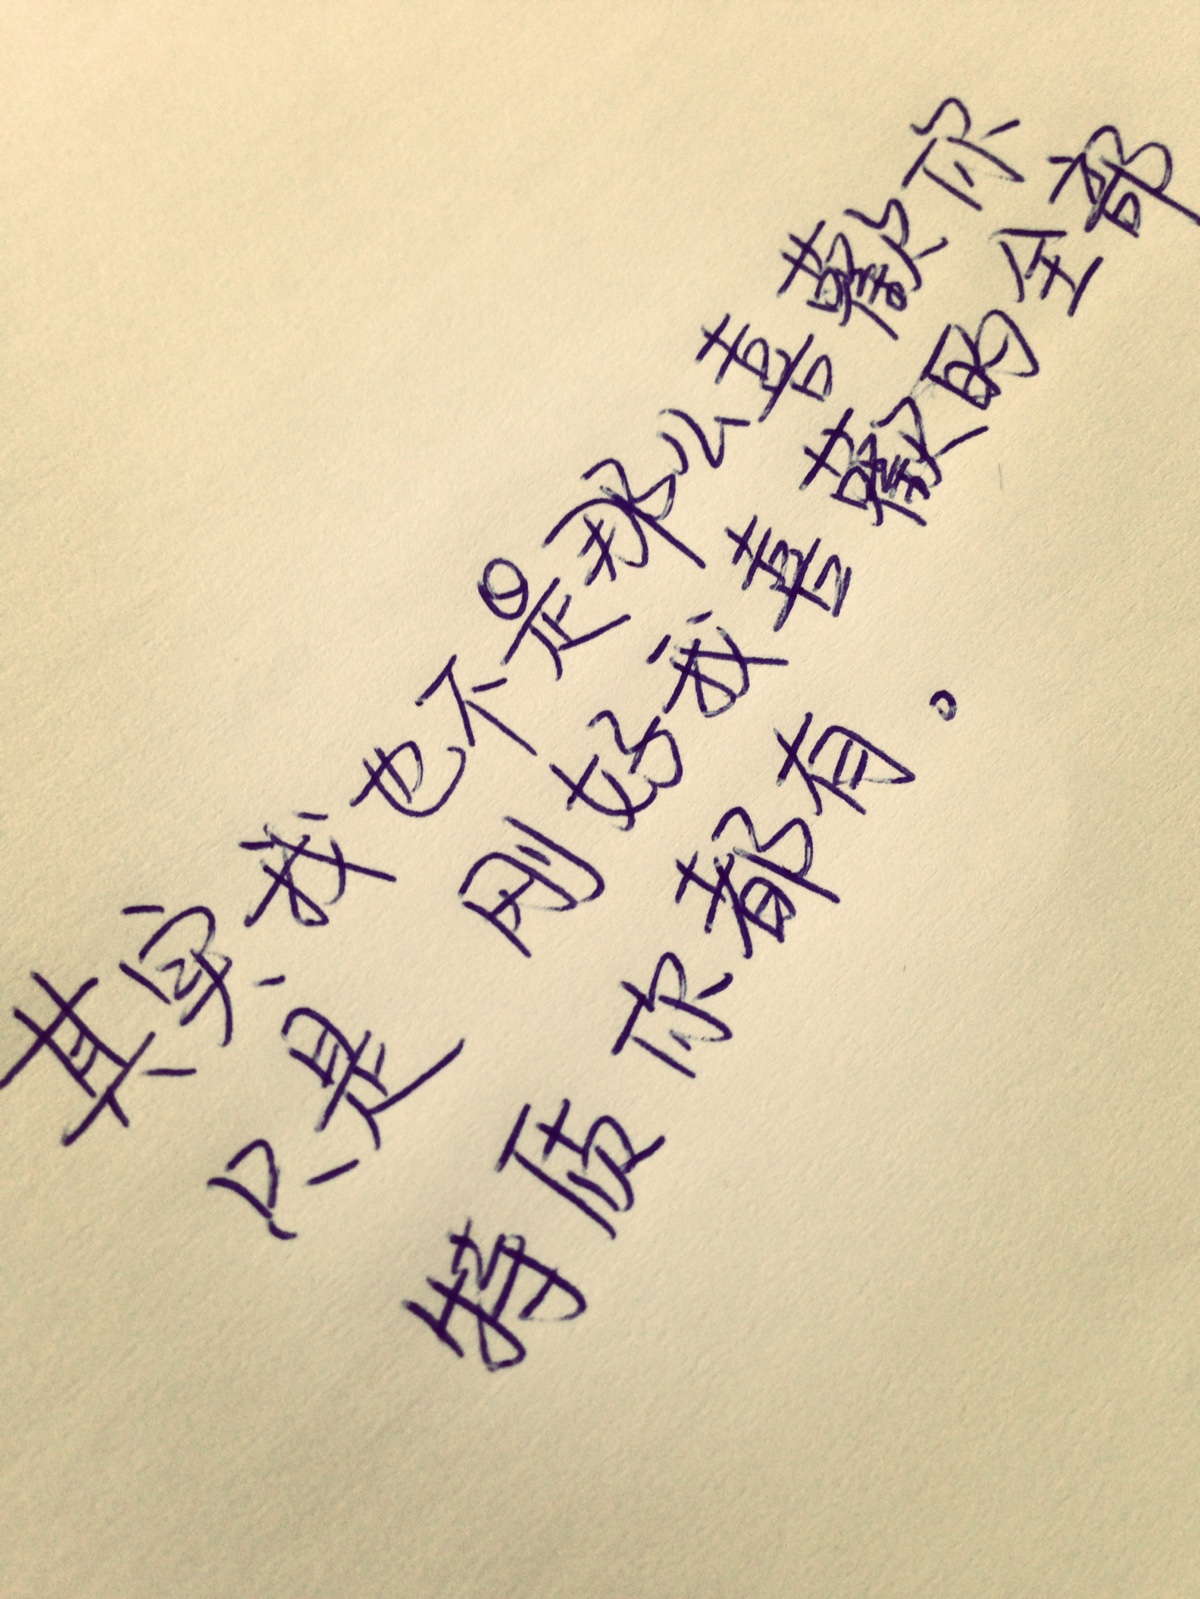 其实我也不是那么喜歡你
只是 刚好我喜歡的全部
特质 你都有。